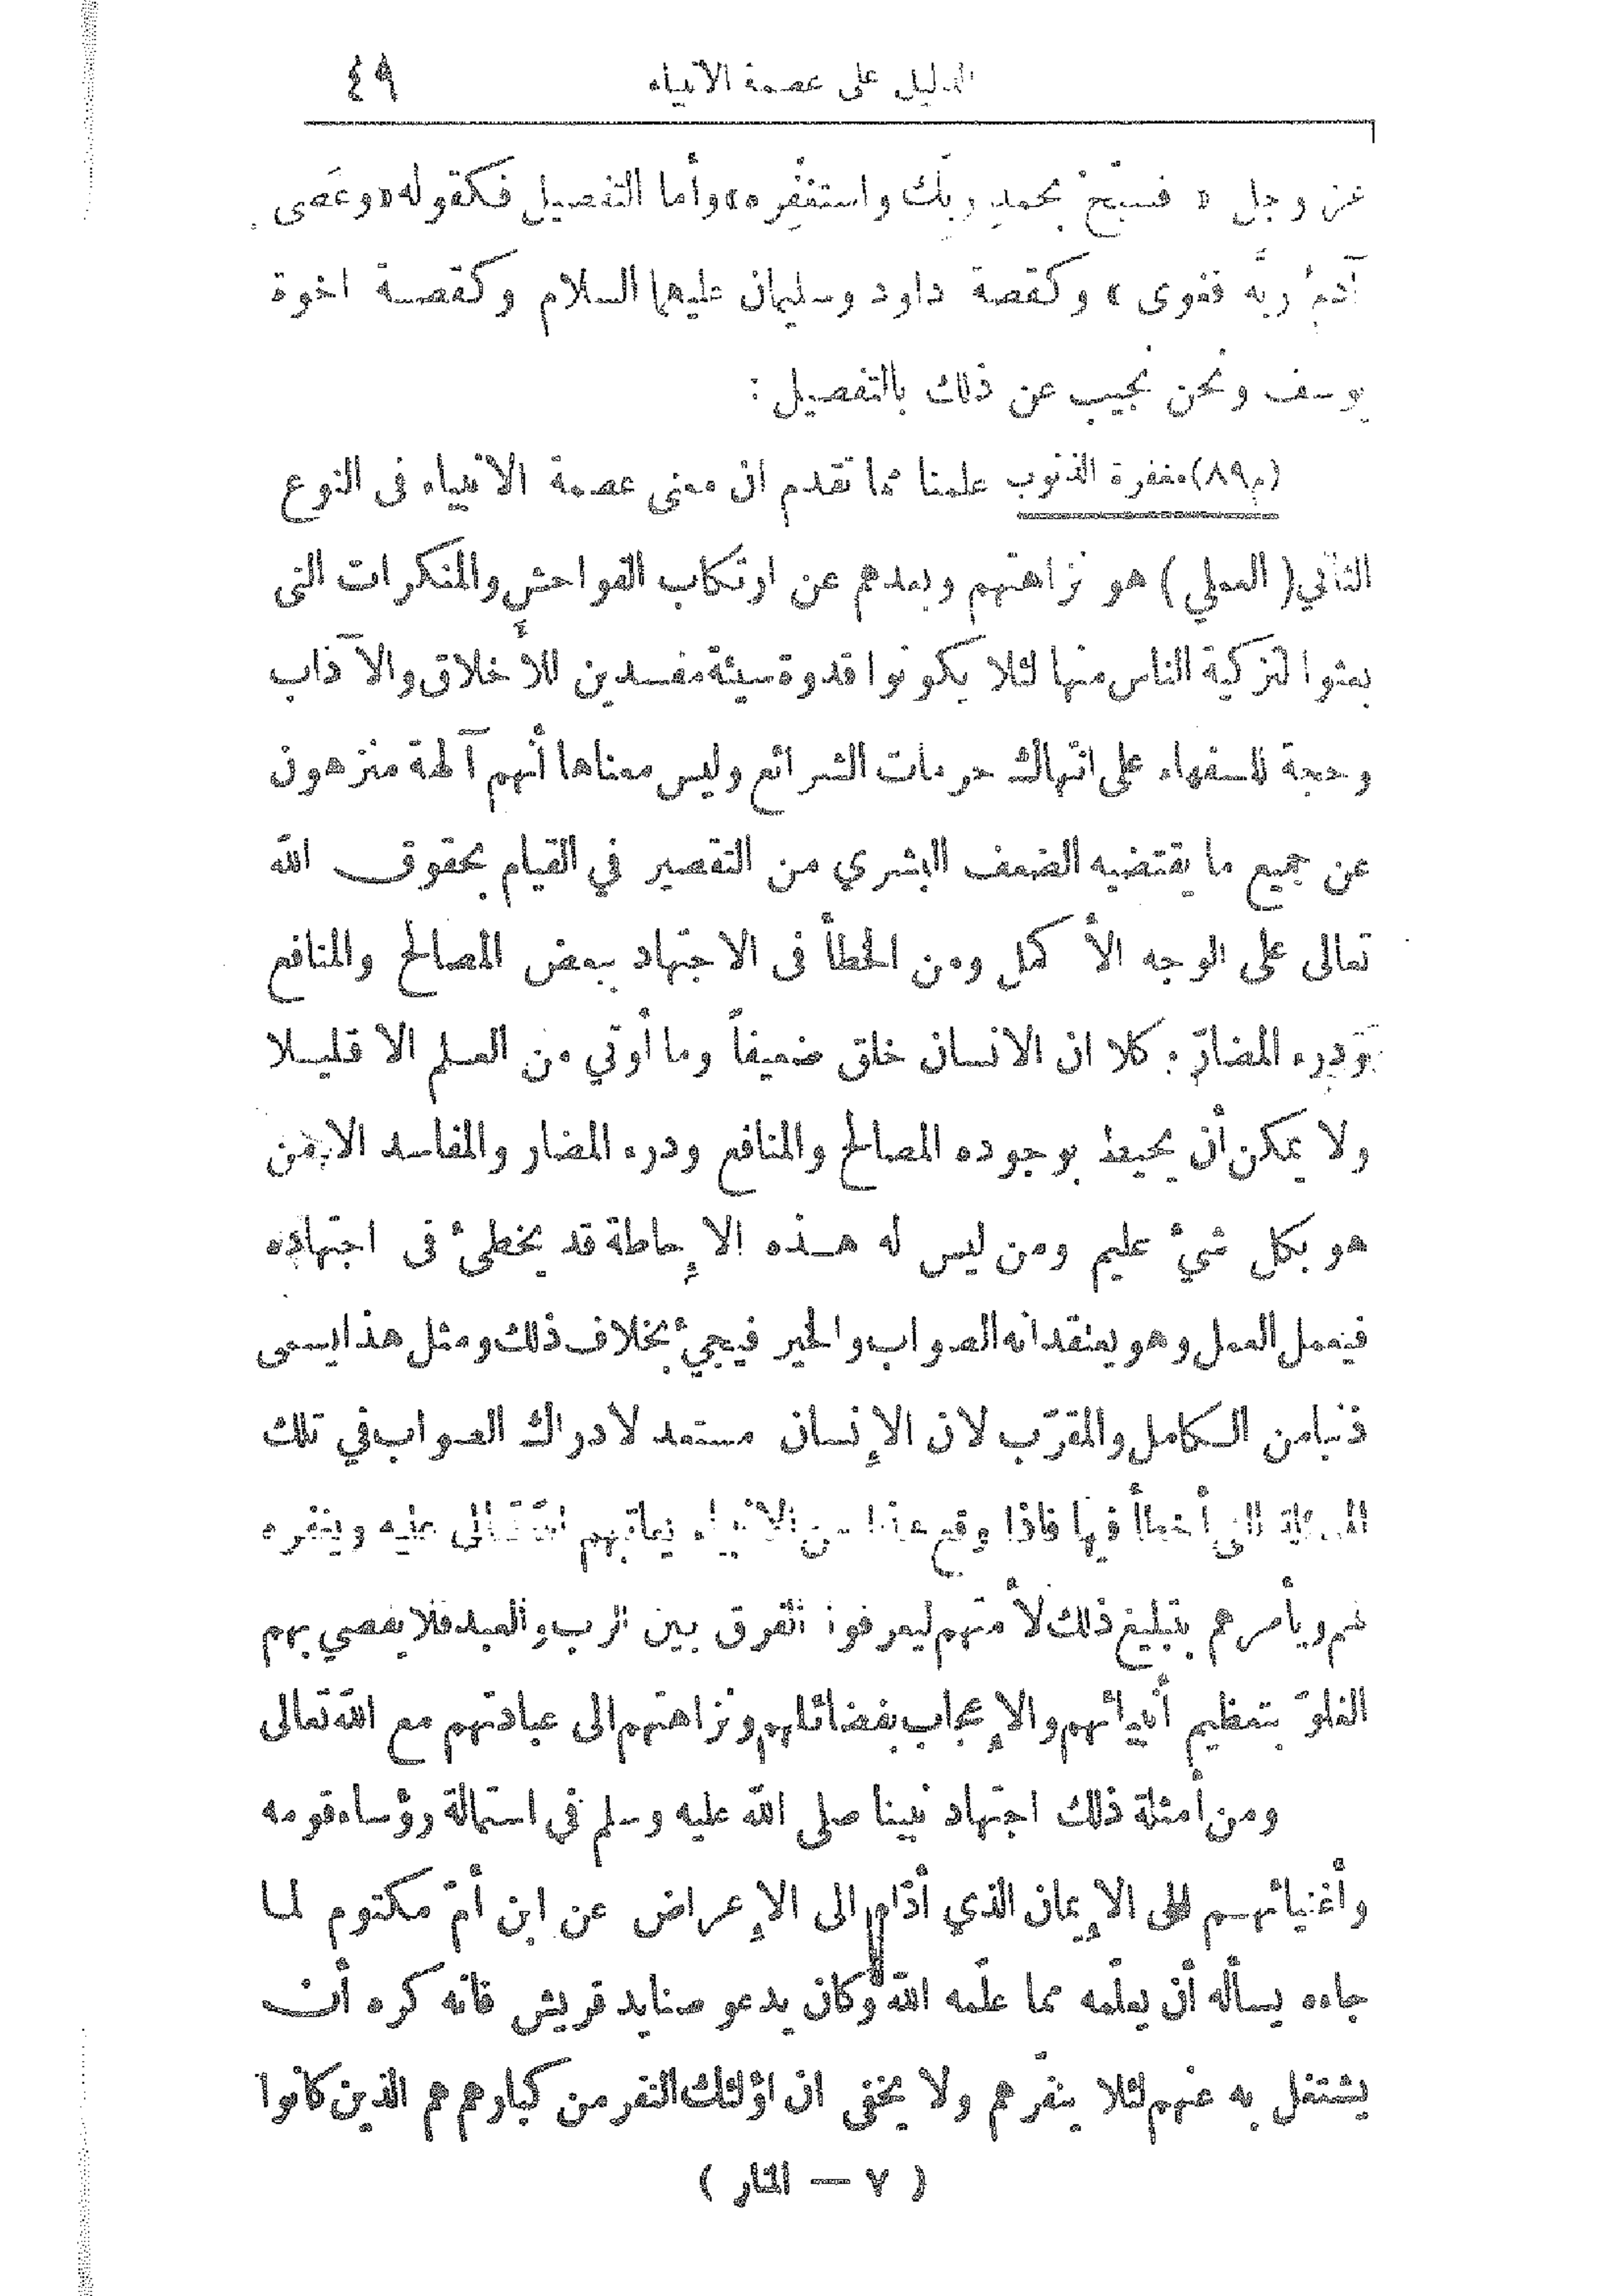 الدليل على عصمة الانبياء ٤٩
عز وجل « فسبّحْ بحمدِ ربّك واستغفِره» وأما التفصيل فكقوله «وعَصى
آدمُ ربَّه فغوى » وكقصة داود وسليمان عليهما السلام وكقصة اخوة
يوسف ونحن نجيب عن ذلك بالتفصيل :
(م٨٩) مغفرة الذنوب علمنا مما تقدم ان معنى عصمة الانبياء فى النوع
الثاني ( العملي ) هو نزاهتهم وبعدهم عن ارتكاب الفواحش والمنكرات التى
بعثوا لتزكية الناس منها لئلا يكونوا قدوة سيئة مفسدين للأخلاق والآداب
وحجة للسفهاء على انتهاك حرمات الشرائع وليس معناها أنهم آلهة منزهون
عن جميع ما يقتضيه الضعف البشري من التقصير في القيام بحقوق الله
تعالى على الوجه الأكمل ومن الخطأ فى الاجتهاد ببعض المصالح والمنافع
ودرء المضارّ . كلا ان الانسان خلق ضعيفاً وما أوتي من العلم الا قليلا
ولا يمكن أن يحيط بوجوده المصالح والمنافع ودرء المضار والمفاسد الا من
هو بكل شيء عليم ومن ليس له هذه الإحاطة قد يخطئ فى اجتهاده
فيعمل العمل وهو يعتقد انه الصواب والخير فيجيء بخلاف ذلك ومثل هذا يسمى
ذنبا من الكامل والمقرّب لان الإنسان مستعد لادراك الصواب في تلك
التي أخطأ فيها فاذا وقع من الانبياء يعاتبهم الله تعالى عليه ويغفره
لهم ويأمرهم بتبليغ ذلك لأمتهم ليعرفوا الفرق بين الرب والعبد فلا يفضي بهم
الغلوّ بتعظيم أنبيائهم والإعجاب بفضائلهم ونزاهتهم الى عبادتهم مع الله تعالى
ومن أمثلة ذلك اجتهاد نبينا صلى الله عليه وسلم في استمالة رؤساء قومه
وأغنيائهم الى الإيمان الذي أدّاه الى الإعراض عن ابن أمّ مكتوم لما
جاءه يسأله أن يعلّمه مما علّمه الله وكان يدعو صناديد قريش فانه كره أن
يشتغل به عنهم لئلا ينفّرهم ولا يخفى ان اولئك النفر من كبارهم هم الذين كانوا
( ٧ — المنار )